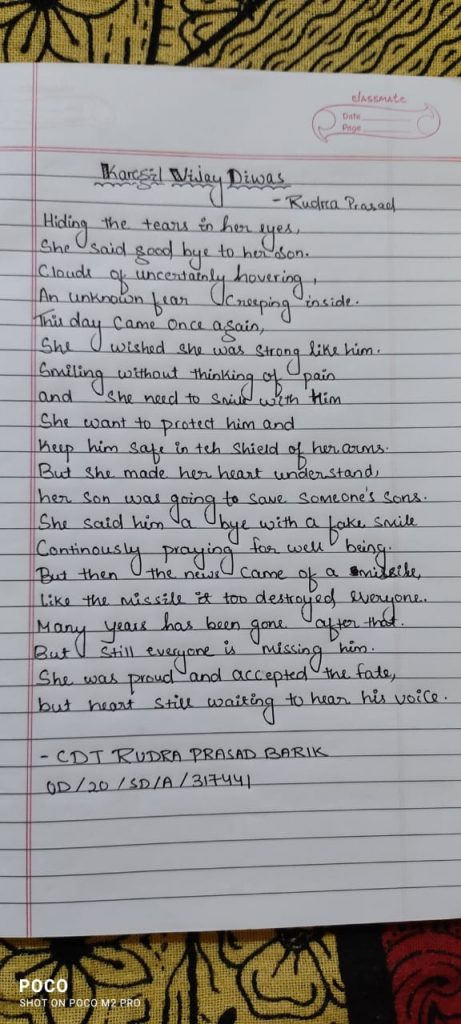 classmate
Date
Page
Karegil Vijay Diwas
- Rudra Prasad
Hiding the tears in her eyes,
She said good bye to her son.
Clouds of uncertainly hovering,
An unknown fear Creeping inside.
This day came once again,
She wished she was strong like him.
Smiling without thinking of pain
and she need to smile with him
She want to protect him and
keep him safe in teh shield of her arms.
But she made her heart understand,
her son was going to save someone's sons.
She said him a bye with a fake smile
Continously praying for well being.
But then the news came of a missile,
like the missile it too destroyed everyone.
Many years has been gone after that.
But still everyone is missing him.
She was proud and accepted the fate,
but heart still waiting to hear his voice.
- CDT RUDRA PRASAD BARIK
OD/20/SD/A/317441
POCO
SHOT ON POCO M2 PRO